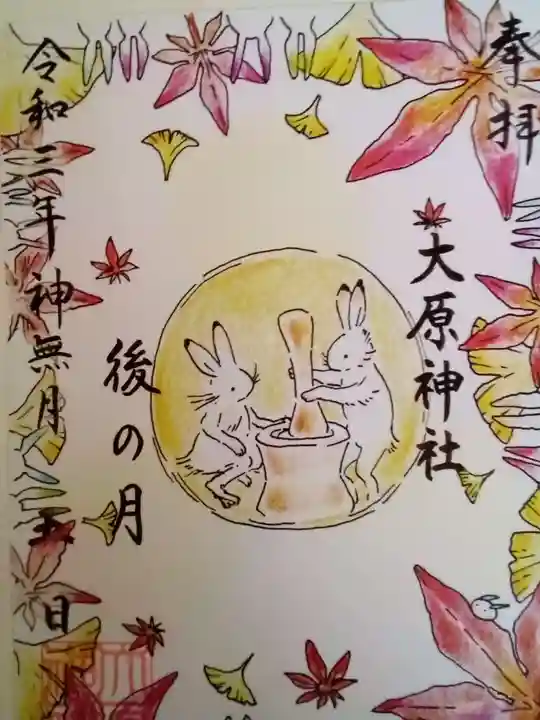 奉拝
大原神社
後の月
令和三年神無月 五日